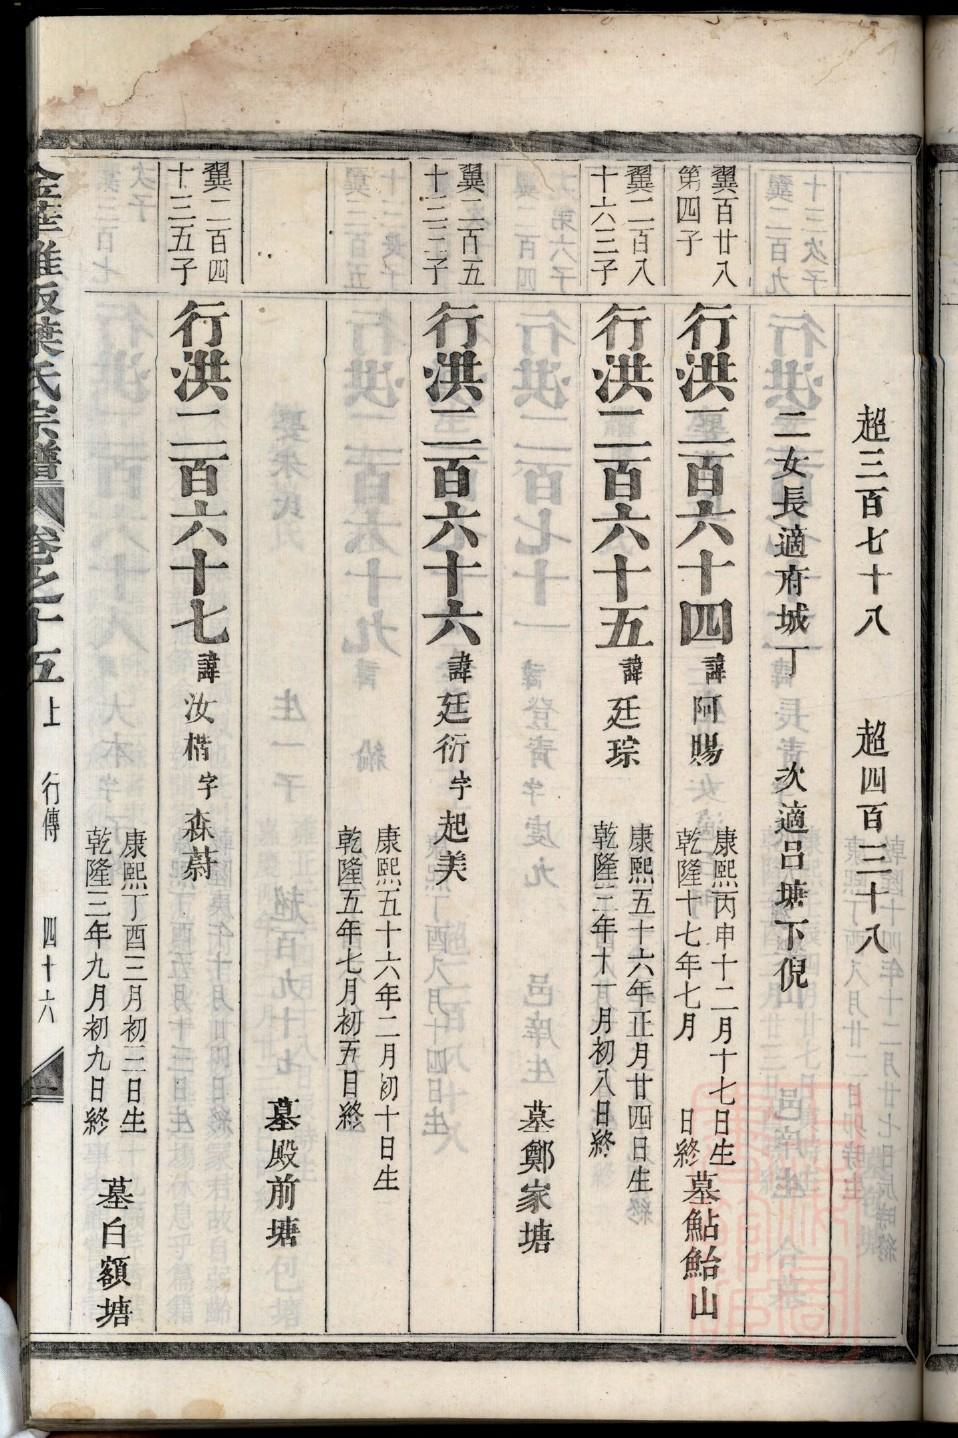 超三百七十八 超四百三十八
二女長適府城丁 次適呂塘下倪
翼百廿八
第四子
行洪二百六十四 諱阿賜
康熙丙申十二月十七日生
乾隆十七年七月 日終
墓鮎鮐山
翼二百八
十六三子
行洪二百六十五 諱廷琮
康熙五十六年正月廿四日生
乾隆二年十一月初八日終
墓鄭家塘
翼二百五
十三三子
行洪二百六十六 諱廷衍字起美
康熙五十六年二月初十日生
乾隆五年七月初五日終
墓殿前塘
翼二百四
十三五子
行洪二百六十七 諱汝楷字森蔚
康熙丁酉三月初三日生
乾隆三年九月初九日終
墓白額塘
葉氏宗譜 卷之十五 上 行傳 四十六